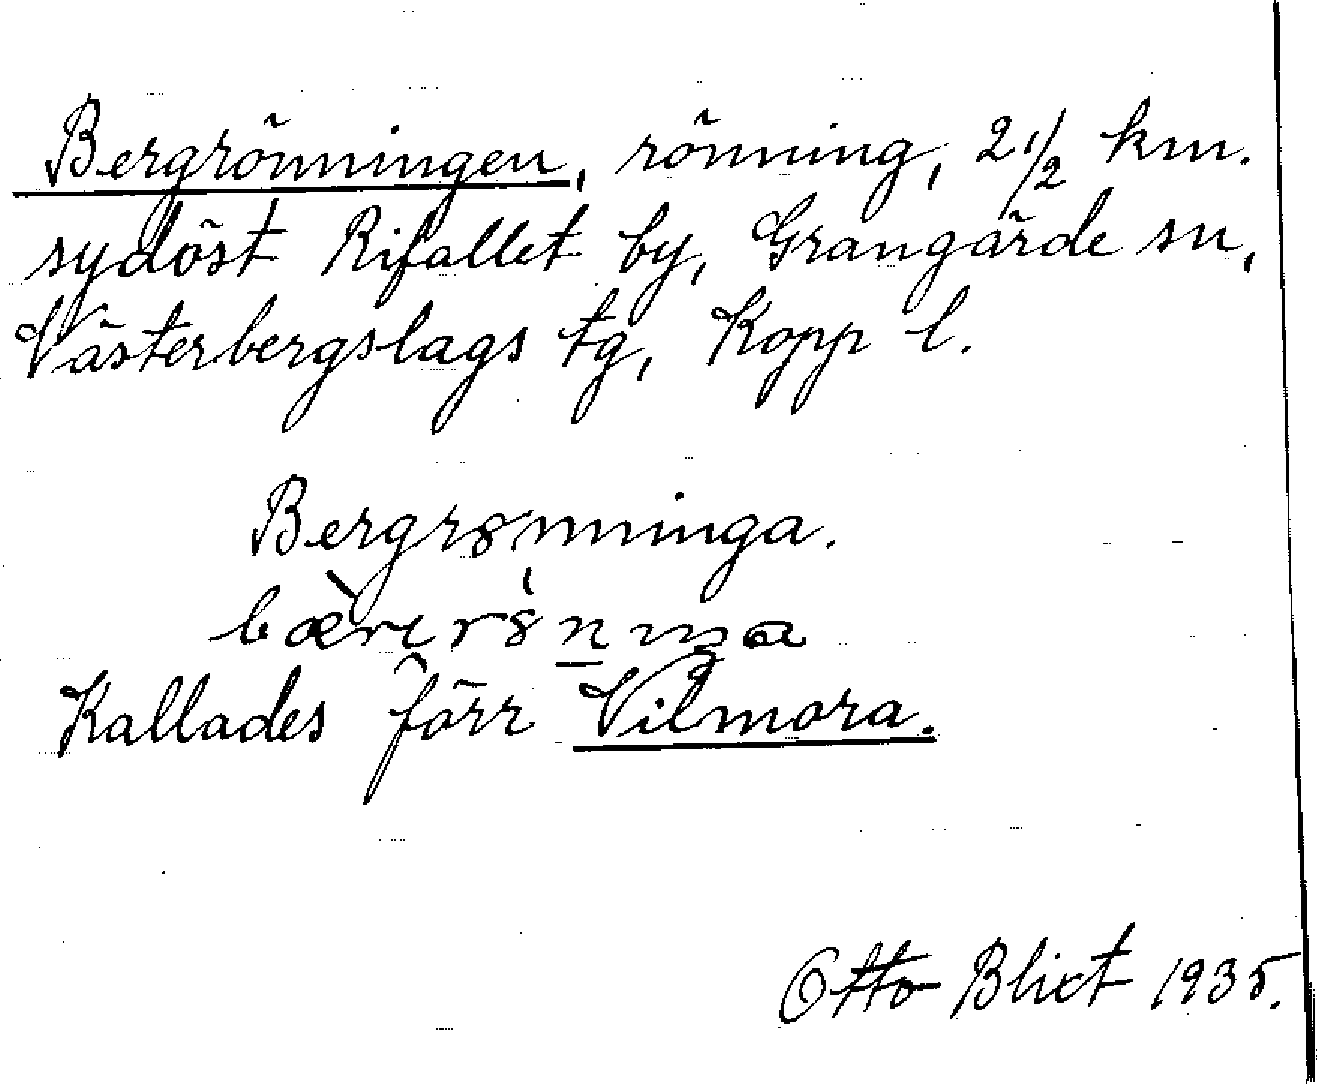 Bergrönningen, rönning, 2 1/2 km.
sydöst Rifallet by, Grangärde sn,
Västerbergslags tg, Kopp l.
Bergrsnninga.
Kallades förr Vilmora.
Otto Blixt 1935.